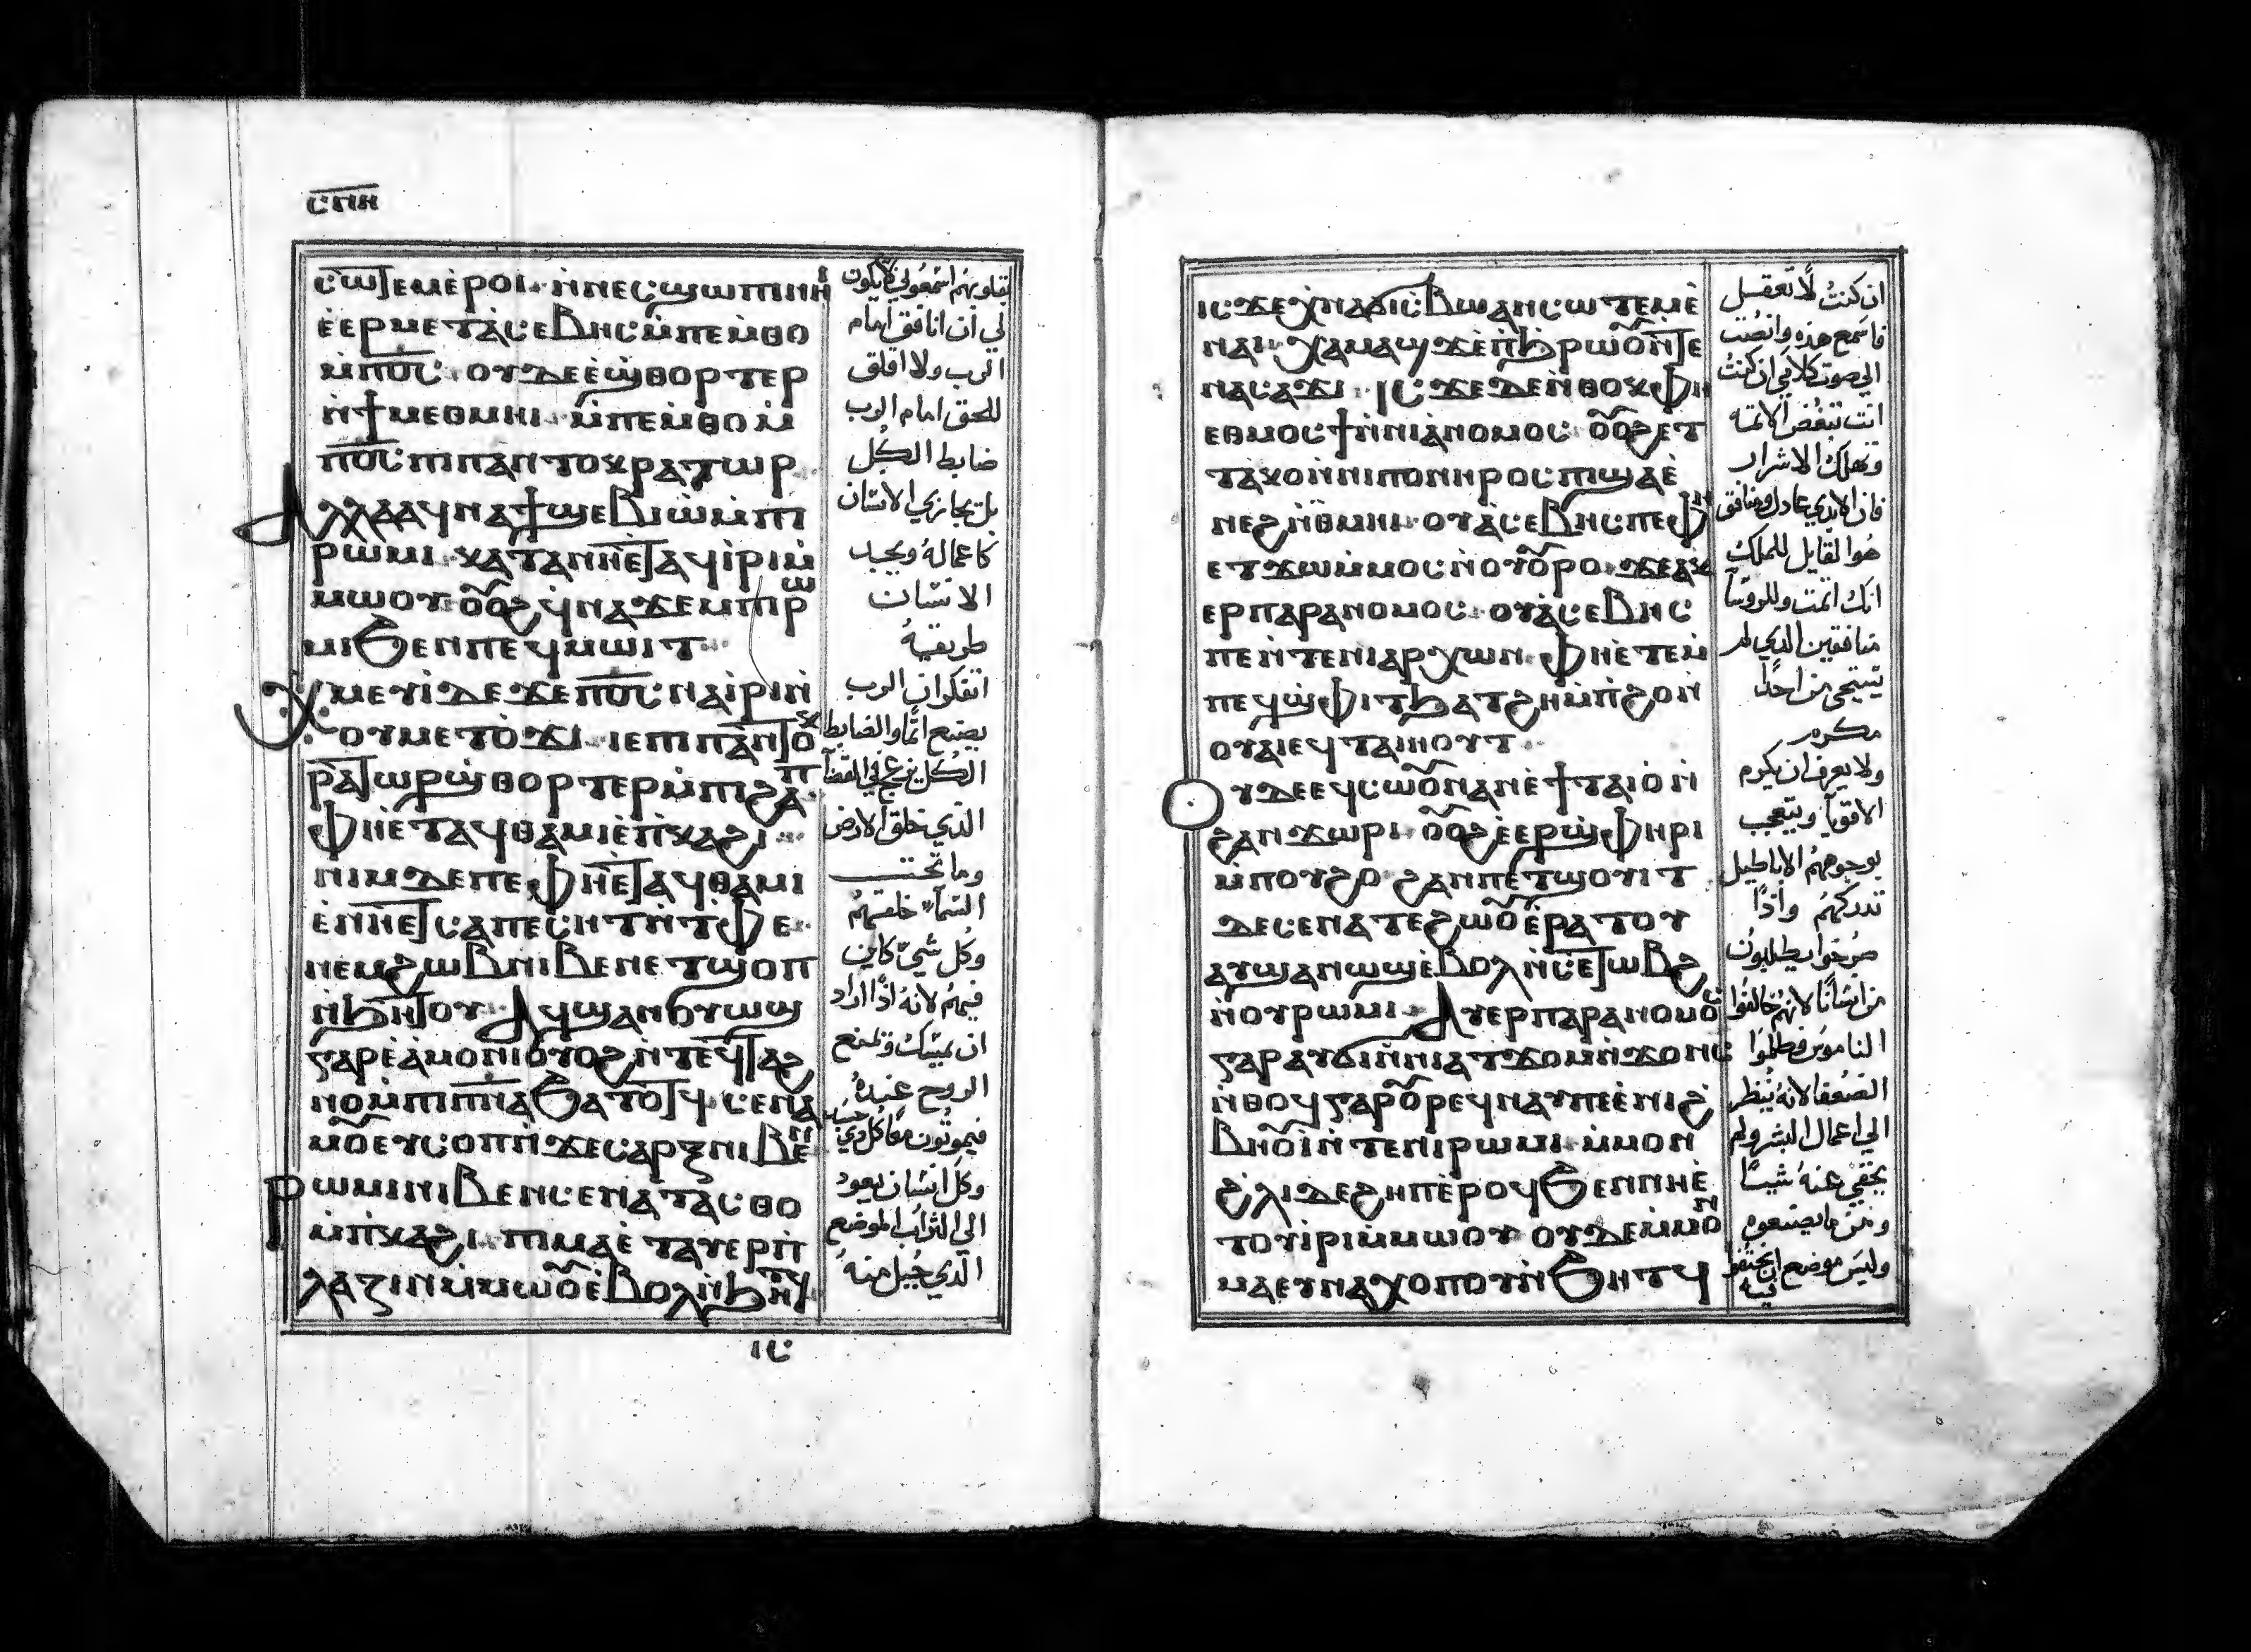 ⲥⲡⲏ
ⲥⲱⲧⲉⲙ ⲉ̀ⲣⲟⲓ ⲛ̀ⲛⲉⲥϣⲱⲡⲓ ⲛⲏⲓ
ⲉ̀ⲉⲣⲙⲉⲧⲁ̀ⲥⲉⲃⲏⲥ ⲙ̀ⲡⲉⲙ̀ⲑⲟ
ⲙ̀ⲡⲟ̅ⲥ̅ ⲟⲩⲇⲉ ⲉ̀ϣ̀ⲑⲟⲣⲧⲉⲣ
ⲛ̀ϯⲙⲉⲑⲙⲏⲓ ⲙ̀ⲡⲉⲙ̀ⲑⲟ ⲙ̀
ⲡⲟ̅ⲥ̅ ⲡⲓⲡⲁⲛⲧⲟⲕⲣⲁⲧⲱⲣ
ⲁⲗⲗⲁ ϥⲛⲁϯϣⲉⲃⲓⲱ̀ ⲙ̀ⲡⲓ
ⲣⲱⲙⲓ ⲕⲁⲧⲁ ⲛⲏⲉ̀ⲧⲁϥⲓ̀ⲣⲓ ⲙ̀
ⲙⲱⲟⲩ ⲟⲩⲟϩ ϥ̀ⲛⲁϫⲉⲙ ⲡⲓⲣⲱ
ⲙⲓ ϧⲉⲛ ⲡⲉϥⲙⲱⲓⲧ
ⲭⲙⲉⲩⲓ̀ ⲇⲉ ϫⲉ ⲡⲟ̅ⲥ̅ ⲛⲁⲓ̀ⲣⲓ ⲛ̀
ⲟⲩⲙⲉⲧϭ̀ⲟϫⲓ ⲓⲉ ⲡⲓⲡⲁⲛⲧⲟⲕ
ⲣⲁⲧⲱⲣ ϣ̀ⲑⲟⲣⲧⲉⲣ ⲙ̀ⲡⲓϩⲁⲡ
ⲫⲏⲉ̀ⲧⲁϥⲑⲁⲙⲓⲉ̀ ⲡ̀ⲕⲁϩⲓ
ⲛⲓⲙ ⲇⲉ ⲡⲉ ⲫⲏⲉ̀ⲧⲁϥⲑⲁⲙⲓ
ⲉ̀ⲛⲏⲉ̀ⲧⲥⲁⲡⲉⲥⲏⲧ ⲛ̀ⲧ̀ⲫⲉ
ⲛⲉⲙ ϩⲱⲃ ⲛⲓⲃⲉⲛ ⲉⲧϣⲟⲡ
ⲛ̀ϧⲏⲧⲟⲩ ⲁϥϣⲁⲛⲟⲩⲱϣ
ⲅⲁⲣ ⲉ̀ⲁ̀ⲙⲟⲛⲓ ⲟⲩⲟϩ ⲛ̀ⲧⲉϥⲧⲁϩ
ⲛⲟ ⲙ̀ⲡⲓⲡ̅ⲛ̅ⲁ̅ ϧⲁⲧⲟⲧϥ ⲥⲉⲛⲁ
ⲙⲟⲩ ⲉⲩⲥⲟⲡ ⲛ̀ϫⲉ ⲥⲁⲣⲝ ⲛⲓⲃⲉⲛ
ⲣⲱⲙⲓ ⲛⲓⲃⲉⲛ ⲥⲉⲛⲁⲧⲁⲥⲑⲟ
ⲙ̀ⲡ̀ⲕⲁϩⲓ ⲡⲓⲙⲁ ⲉ̀ⲧⲁⲩⲉⲣⲡ
ⲗⲁⲍⲓⲛ ⲙ̀ⲙⲱⲟⲩ ⲉ̀ⲃⲟⲗ ⲛ̀ϧⲏⲧϥ
ⲓⲥ
بقلوبهم اسمعوني لا يكون
لي ان انافق امام
الرب ولا اقلق
للحق امام الرب
ضابط الكل
بل يجازي الانسان
كاعماله ويجد
الانسان
طريقيه
اتفكر ان الرب
يصنع اثما والضابط
الكل يزعج في القضا
الذي خلق الارض
وما تحت
السما خلقهم
وكل شي كاين
فيهم لانه اذا اراد
ان يمسك ويمنع
الروح عنده
فيموتون معا كل ذي جسد
وكل انسان يعود
الى التراب الموضع
الذي جبل منه
ⲓⲥϫⲉ ⲭ̀ⲛⲁϭⲓⲥⲃⲱ ⲁⲛ ⲥⲱⲧⲉⲙ ⲉ̀
ⲛⲁⲓ ⲭⲁ ⲙⲁϣϫ ⲉ̀ⲡ̀ϧⲣⲱⲟⲩ ⲛ̀ⲧⲉ
ⲛⲁⲥⲁϫⲓ ⲓⲥϫⲉ ⲇⲉ ⲛ̀ⲑⲟⲕ ⲫⲏ
ⲉⲑⲙⲟⲥϯ ⲛ̀ⲛⲓⲁ̀ⲛⲟⲙⲟⲥ ⲟⲩⲟϩ ⲉⲧ
ⲧⲁⲕⲟ ⲛ̀ⲛⲓⲡⲟⲛⲏⲣⲟⲥ ⲡⲓϣⲁⲉ̀
ⲛⲉϩ ⲛ̀ⲑⲙⲏⲓ ⲟⲩⲁ̀ⲥⲉⲃⲏⲥ ⲡⲉ ⲫⲏ
ⲉⲧϫⲱ ⲙ̀ⲙⲟⲥ ⲛ̀ⲟⲩⲟⲩⲣⲟ ϫⲉ ⲁⲕ
ⲉⲣⲡⲁⲣⲁⲛⲟⲙⲟⲥ ⲟⲩⲁ̀ⲥⲉⲃⲏⲥ
ⲡⲉ ⲛ̀ⲧⲉ ⲛⲓⲁⲣⲭⲱⲛ ⲫⲏⲉ̀ⲧⲉⲙ
ⲡⲉϥϣ̀ⲫⲓⲧ ϧⲁⲧϩⲏ ⲙ̀ⲡ̀ϩⲟ ⲛ̀
ⲟⲩⲁⲓ ⲉϥⲧⲁⲓⲏⲟⲩⲧ
ⲟⲩⲇⲉ ⲉϥⲥⲱⲟⲩⲛ ⲁⲛ ⲉ̀ϯⲧⲁⲓⲟ ⲛ̀
ϩⲁⲛϫⲱⲣⲓ ⲟⲩⲟϩ ⲉ̀ⲉⲣϣ̀ⲫⲏⲣⲓ
ⲙ̀ⲡⲟⲩϩⲟ ϩⲁⲛⲡⲉⲧϣⲟⲩⲓⲧ
ⲇⲉ ⲥⲉⲛⲁⲧⲉϩⲱⲟⲩ ⲉ̀ⲣⲁⲧⲟⲩ
ⲁⲩϣⲁⲛⲱϣ ⲉ̀ⲃⲟⲗ ⲛ̀ⲥⲉⲧⲱⲃϩ
ⲛ̀ⲟⲩⲣⲱⲙⲓ ⲁⲩⲉⲣⲡⲁⲣⲁⲛⲟⲙⲟⲥ
ⲅⲁⲣ ⲁⲩϭⲓ ⲛ̀ⲛⲓⲁⲧϫⲟⲙ ⲛ̀ϫⲟⲛⲥ
ⲛ̀ⲑⲟϥ ⲅⲁⲣ ⲟⲩⲣⲉϥⲛⲁⲩ ⲡⲉ ⲉ̀ⲛⲓϩ
ⲃⲏⲟⲩⲓ̀ ⲛ̀ⲧⲉ ⲛⲓⲣⲱⲙⲓ ⲙ̀ⲙⲟⲛ
ϩ̀ⲗⲓ ⲇⲉ ϩⲏⲡ ⲉ̀ⲣⲟϥ ϧⲉⲛ ⲛⲏⲉ̀
ⲧⲟⲩⲓ̀ⲣⲓ ⲙ̀ⲙⲱⲟⲩ ⲟⲩⲇⲉ ⲙ̀ⲙⲟⲛ
ⲙⲁ ⲉⲩⲛⲁⲭⲟⲡⲟⲩ ⲛ̀ϧⲏⲧϥ
ان كنت لا تعقل
فاسمع هذه وانصت
الى صوت كلامي ان كنت
انت تبغض الاثمة
وتهلك الاشرار
فان الابدي عادل ومنافق
هو القايل للملك
انك اثمت وللروسا
منافقين الذي لم
يستحي من احدا
مكرم
ولا يعرف ان يكرم
الاقويا ويتعجب
بوجوههم الاباطيل
تدركهم واذا
صرخوا يطلبون
من انسانا لانهم خالفوا
الناموس فظلموا
الضعفا لانه ينظر
الى اعمال البشر ولم
يختفي عنه شيا
من ما يصنعوه
وليس موضع ان يختفوا
فيه